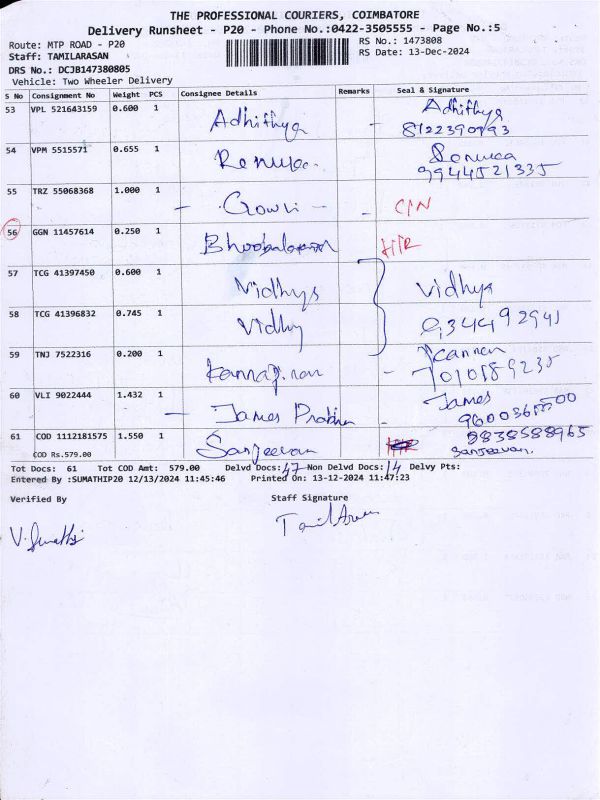 THE PROFESSIONAL COURIERS, COIMBATORE
Delivery Runsheet - P20 - Phone No.:0422-3505555 - Page No.:5
Route: MTP ROAD - P20
RS No.: 1473808
Staff: TAMILARASAN
RS Date: 13-Dec-2024
DRS No.: DCJB147380805
Vehicle: Two Wheeler Delivery
S No Consignment No Weight PCS Consignee Details Remarks Seal & Signature
53 VPL 521643159 0.600 1 Adhithya Adhithya
8122390793
54 VPM 5515571 0.655 1 Renuga Renuga
9944521335
55 TRZ 55068368 1.000 1 - Gowri - - C/N
56 GGN 11457614 0.250 1 H/R
57 TCG 41397450 0.600 1 Vidhya Vidhya
58 TCG 41396832 0.745 1 Vidhy 9344492941
59 TNJ 7522316 0.200 1 - Kannan
7010189235
60 VLI 9022444 1.432 1 - James Prabhu - James
61 COD 1112181575 1.550 1 Sanjeevan 9838588965
COD Rs.579.00 Sanjeevan.
Tot Docs: 61 Tot COD Amt: 579.00 Delvd Docs: 47 Non Delvd Docs: 14 Delvy Pts:
Entered By :SUMATHIP20 12/13/2024 11:45:46 Printed On: 13-12-2024 11:47:23
Verified By Staff Signature
V. Sumathi